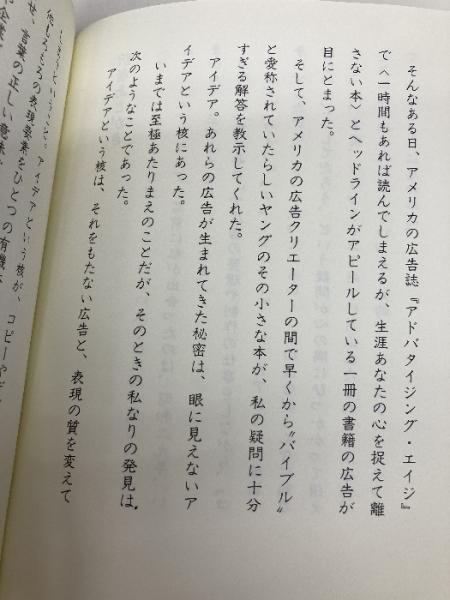 そんなある日、アメリカの広告誌『アドバタイジング・エイジ』
で〈一時間もあれば読んでしまえるが、生涯あなたの心を捉えて離
さない本〉とヘッドラインがアピールしている一冊の書籍の広告が
目にとまった。
そして、アメリカの広告クリエーターの間で早くから〝バイブル〟
と愛称されていたらしいヤングのその小さな本が、私の疑問に十分
すぎる解答を教示してくれた。
アイデア。あれらの広告が生まれてきた秘密は、眼に見えないア
イデアという核にあった。
いまでは至極あたりまえのことだが、そのときの私なりの発見は、
次のようなことであった。
アイデアという核は、それをもたない広告と、表現の質を変えて
しまうということ。アイデアという核が、コピーやデ
他もろもろの表現要素をひとつの有機
せ、言葉の正しい意味で
企業